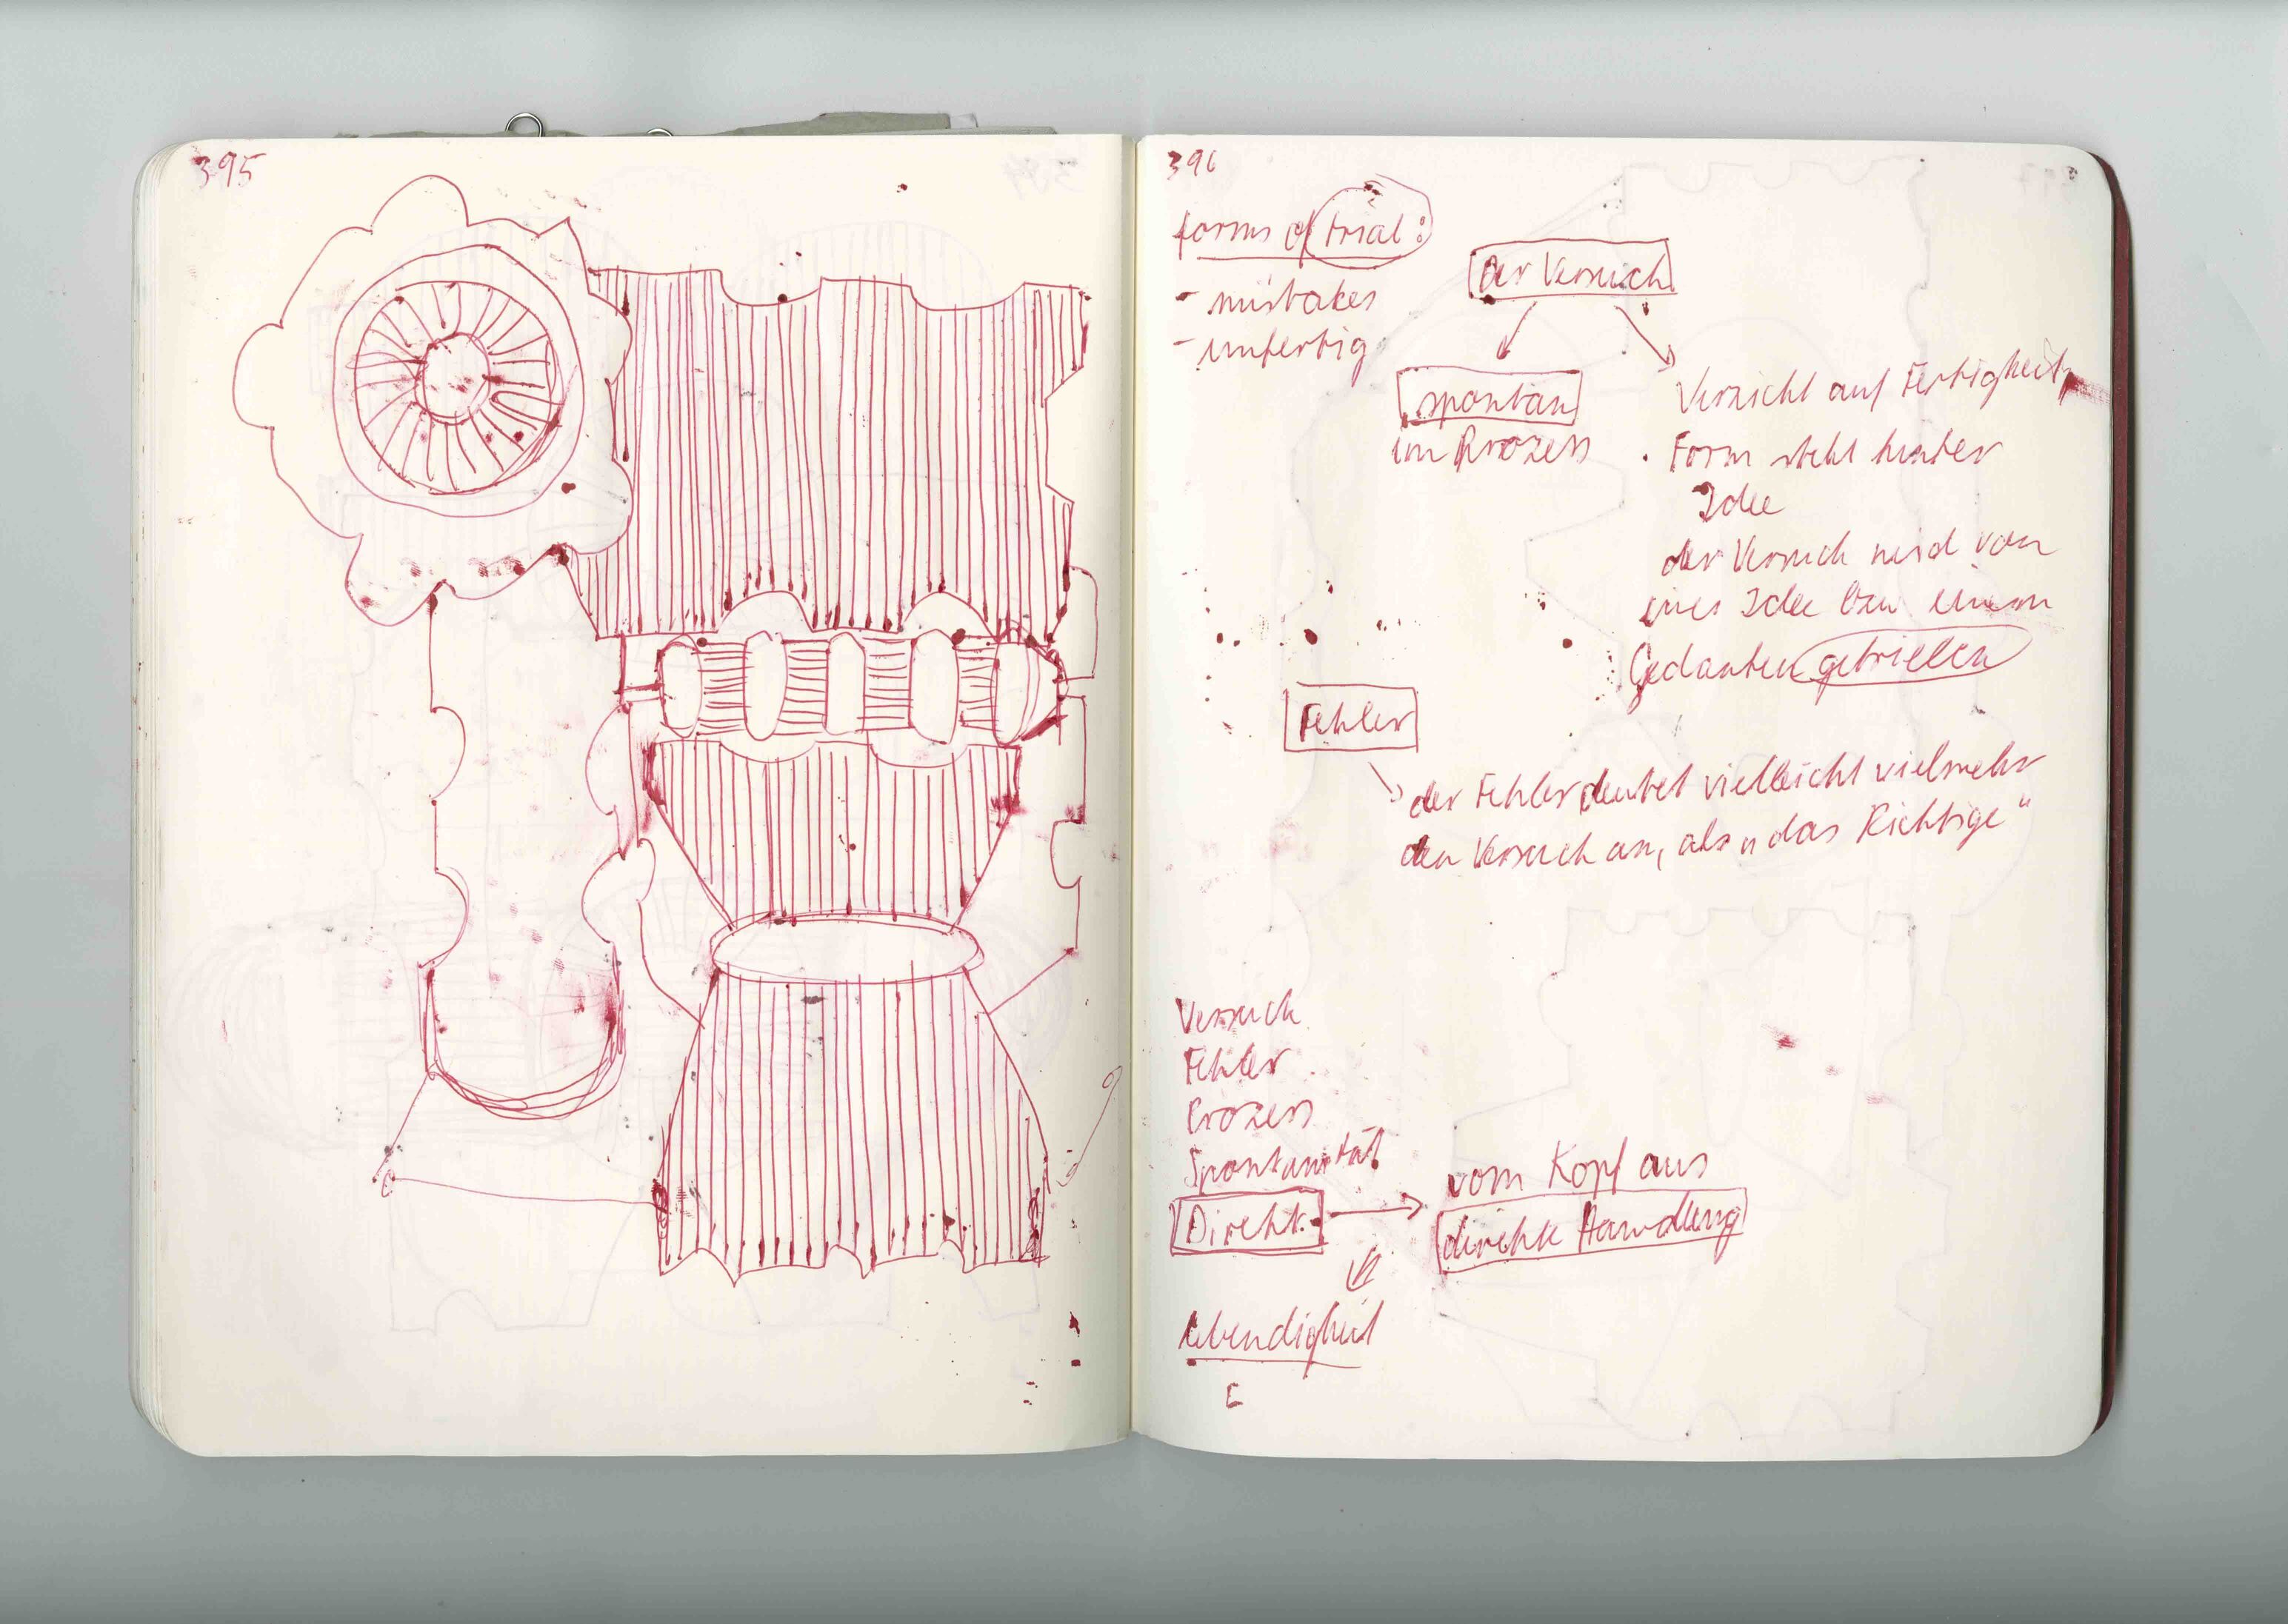 395
396
forms of trial:
- mistakes
- unfertig
der Versuch
spontan
im Prozess
Verzicht auf Fertigkeit
· Form steht hinter
Idee
der Versuch wird von
einer Idee bzw einem
Gedanken getrieben
Fehler
der Fehler deutet vielleicht vielmehr
den Versuch an, als „das Richtige“
Versuch
Fehler
Prozess
Spontanität
Direkt.
vom Kopf aus
direkte Handlung
Lebendigkeit